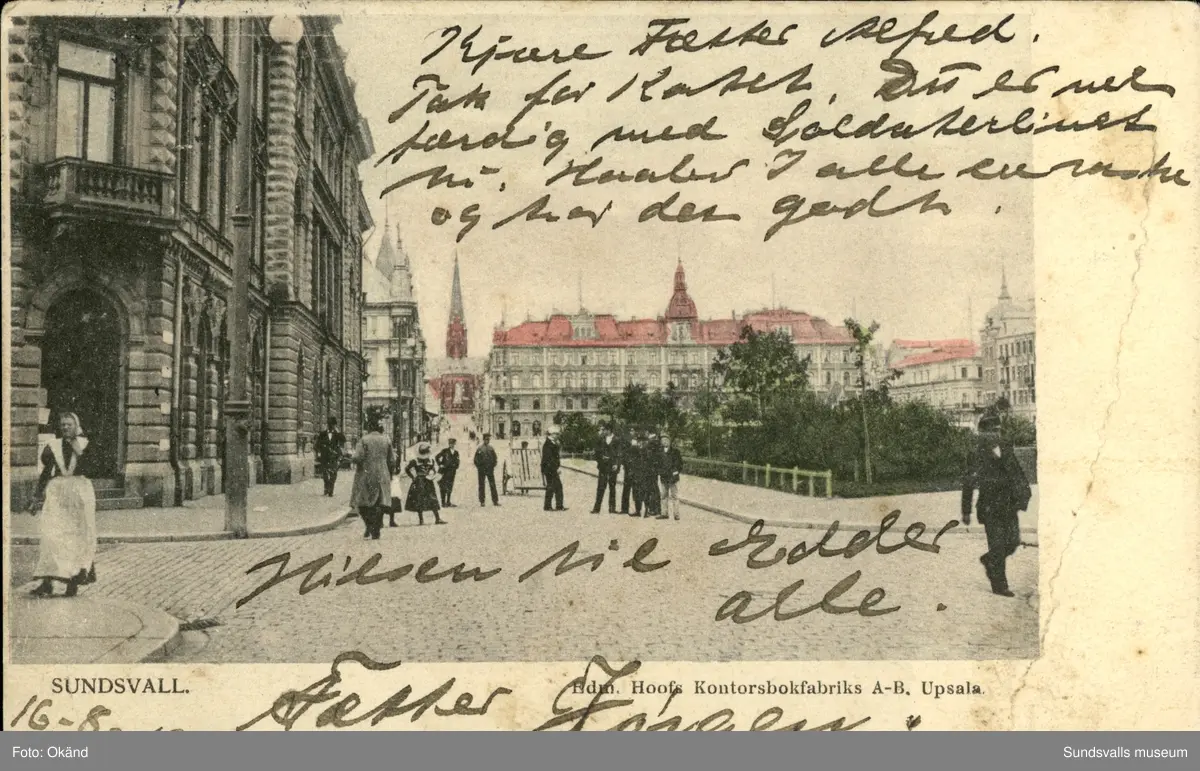 Kjære Fætter Alfred.
Tak for Kortet, Du er vel
færdig med Soldaterlivet
nu. Haaber I alle ere raske
og har det godt.
Hilsen til Eder
alle.
Fætter Jørgen.
SUNDSVALL.
Edm. Hoofs Kontorsbokfabriks A-B. Upsala.
16-8
Foto: Okänd
Sundsvalls museum